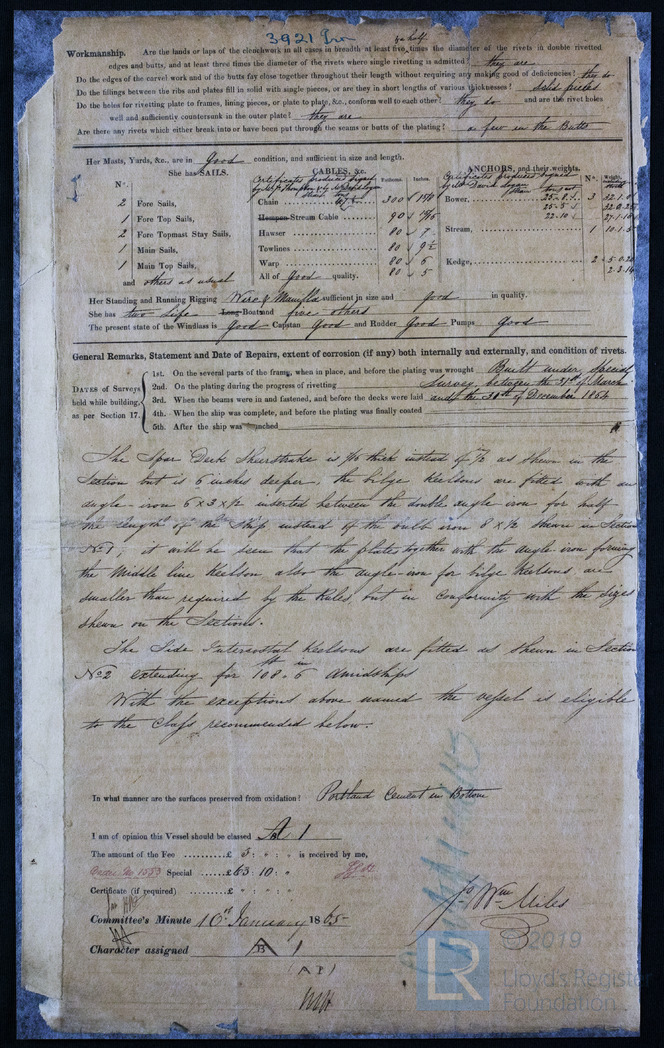 3921 Iron
& a half
Workmanship. Are the lands or laps of the clenchwork in all cases in breadth at least five times the diameter of the rivets in double rivetted
edges and butts, and at least three times the diameter of the rivets where single rivetting is admitted? they are
Do the edges of the carvel work and of the butts fay close together throughout their length without requiring any making good of deficiencies? they do
Do the fillings between the ribs and plates fill in solid with single pieces, or are they in short lengths of various thicknesses? solid pieces
Do the holes for rivetting plate to frames, lining pieces, or plate to plate, &c., conform well to each other? they do and are the rivet holes
well and sufficiently countersunk in the outer plate? they are
Are there any rivets which either break into or have been put through the seams or butts of the plating? a few in the Butts
Her Masts, Yards, &c., are in good condition, and sufficient in size and length.
She has SAILS. CABLES, &c. ANCHORS, and their weights.
N°. Certificates produced signed Fathoms. Inches. Certificates produced signed N°. Weight.
2 Fore Sails, Chain 300 Bower, 3
1 Fore Top Sails, Hempen Stream Cable 90
2 Fore Topmast Stay Sails, Hawser 80 7 Stream, 1
1 Main Sails, Towlines 80
1 Main Top Sails, Warp 80 6 Kedge, 2
and others as usual All of Good quality. 80 5
Her Standing and Running Rigging Wire & Manilla sufficient in size and good in quality.
She has two Life Long Boat and five others
The present state of the Windlass is Good Capstan Good and Rudder Good Pumps Good
General Remarks, Statement and Date of Repairs, extent of corrosion (if any) both internally and externally, and condition of rivets.
DATES of Surveys held while building, as per Section 17.
1st. On the several parts of the frame, when in place, and before the plating was wrought Built under special
2nd. On the plating during the progress of rivetting Survey, between the 31st of March
3rd. When the beams were in and fastened, and before the decks were laid and the 31st of December 1864
4th. When the ship was complete, and before the plating was finally coated
5th. After the ship was launched
The Spar Deck Sheerstrake is thick instead of as shewn in the
Section but is 6 inches deeper, the bilge Keelsons are fitted with an
angle-iron 6 x 3 x ½ inserted between the double angle iron for half
the length of the Ship instead of the bulb iron 8 x ½ shewn in Section
No 1, it will be seen that the plates together with the angle iron forming
the Middle line Keelson also the angle-iron for bilge Keelsons are
smaller than required by the Rules, but in conformity with the sizes
shewn on the Sections.
The Side Intercostal Keelsons are fitted as shewn in Section
No 2 extending for 108 ft 6 in amidships
With the exceptions above named the vessel is eligible
to the Class recommended below.
In what manner are the surfaces preserved from oxidation? Portland Cement in Bottom
I am of opinion this Vessel should be classed A 1
The amount of the Fee .........£ 5 : „ : „ is received by me,
Special ......£63 : 10 : „
Certificate (if required) .......£ „ : „ : „
Jo. Wm Miles
Committee's Minute 10th January 1865
Character assigned A 1
B
(A 1)
©2019
LR
Lloyd's Register
Foundation